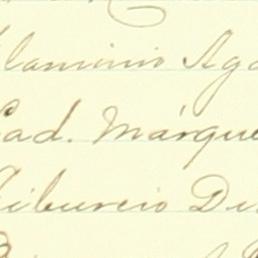 laminio Ag
ad. Márque
iburcio D